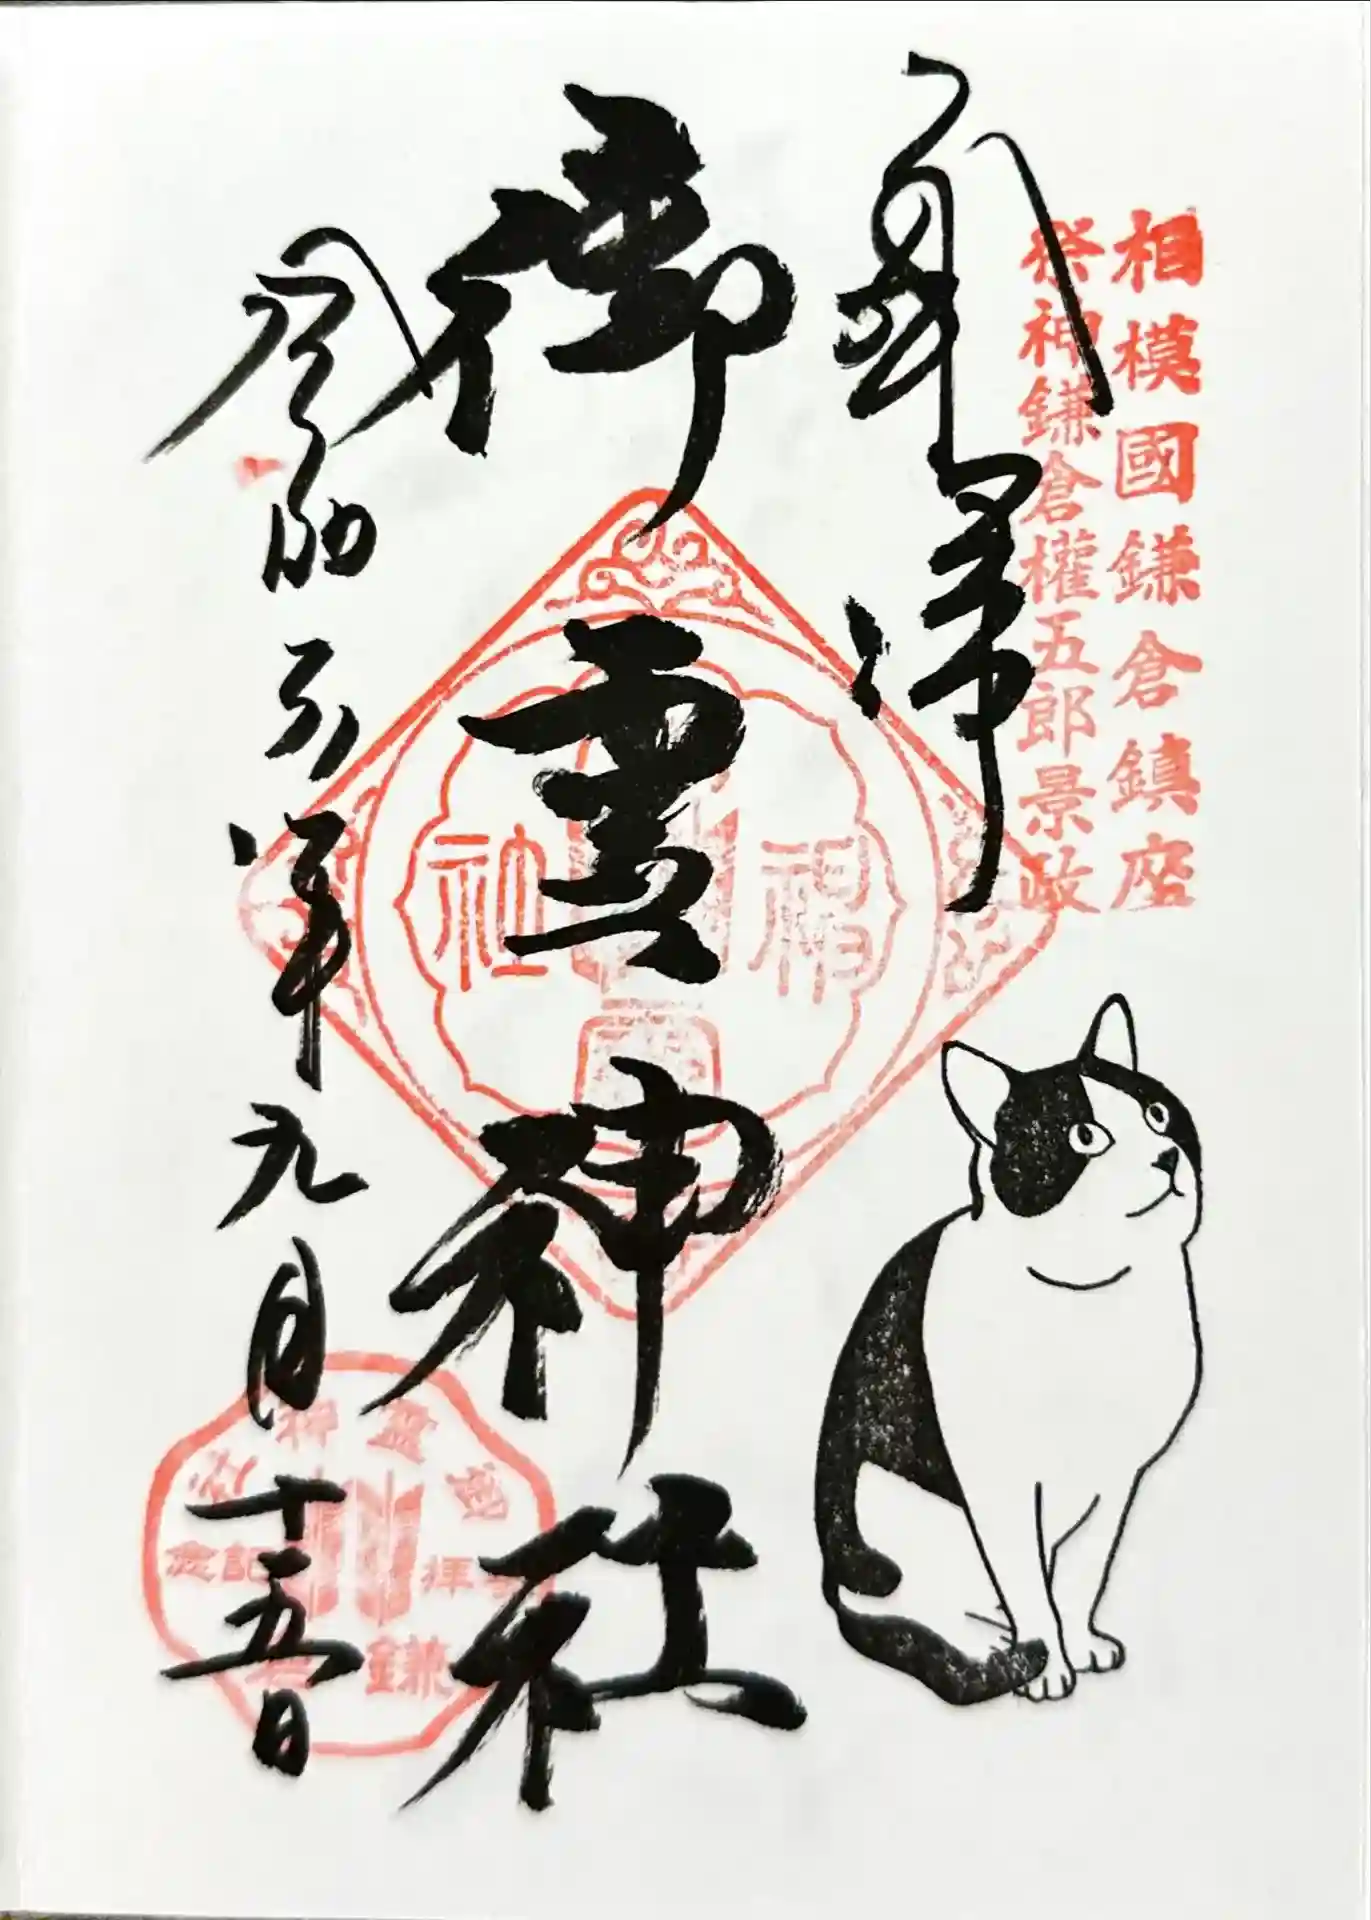 相模國鎌倉鎮座
祭神鎌倉權五郎景政
奉拝
御霊神社
令和六年九月十五日
神社
御霊神社
参拝記念
鎌倉